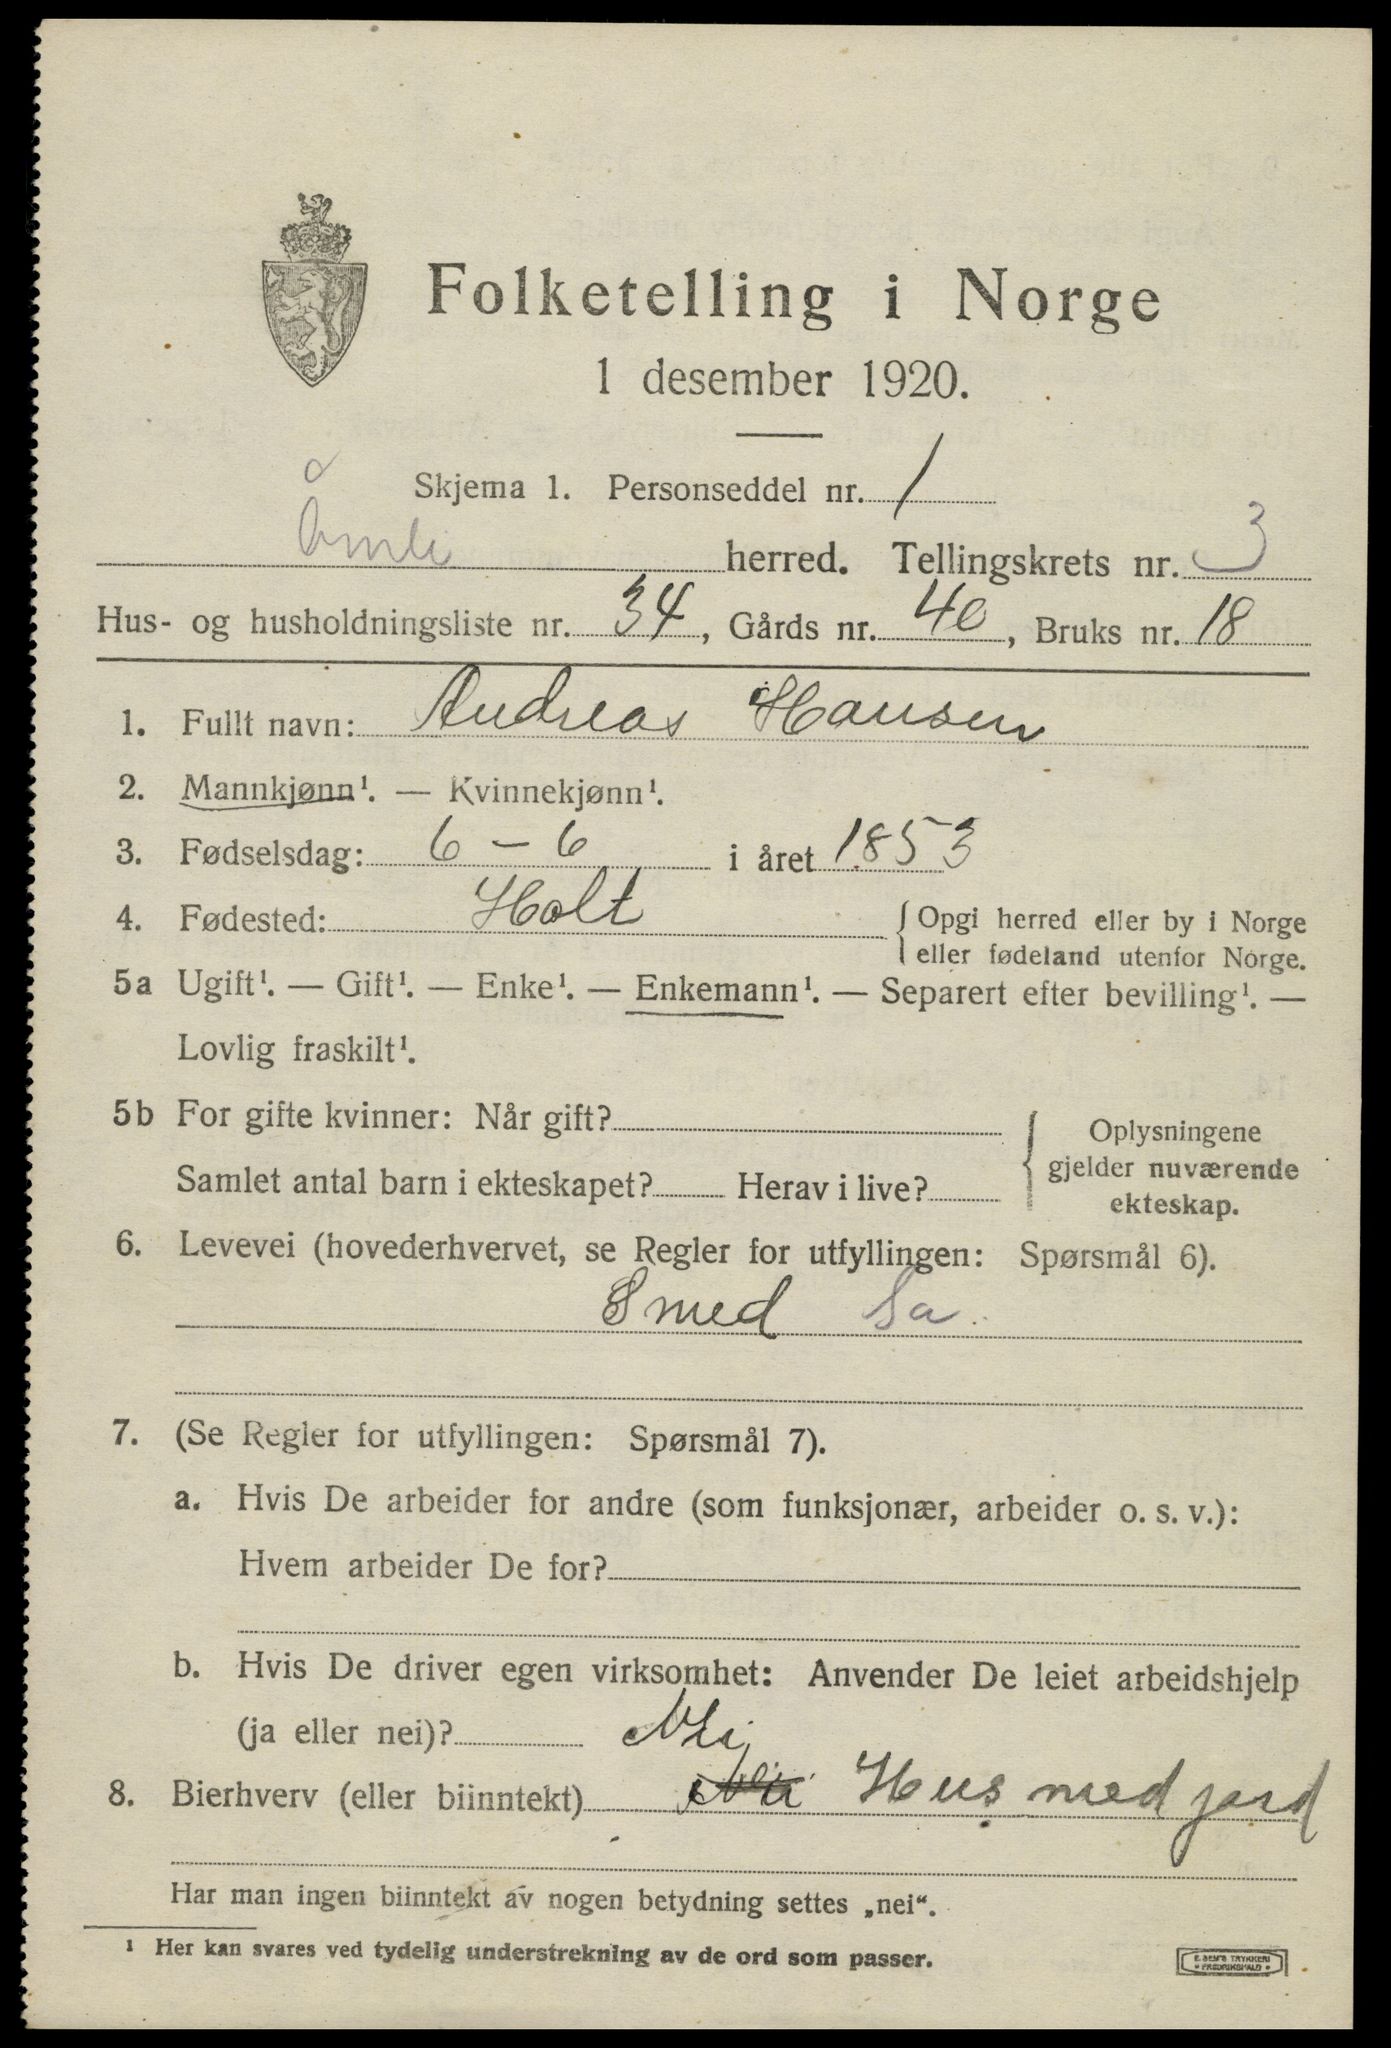 Folketelling i Norge
1 desember 1920.
Skjema 1. Personseddel nr. 1
Åmli herred. Tellingskrets nr. 3
Hus- og husholdningsliste nr. 34, Gårds nr. 40, Bruks nr. 18
1. Fullt navn: Andreas Hansen
2. Mannkjønn¹. — Kvinnekjønn¹.
3. Fødselsdag: 6 – 6 i året 1853
4. Fødested: Holt { Opgi herred eller by i Norge
eller fødeland utenfor Norge.
5a Ugift¹. — Gift¹. — Enke¹. — Enkemann¹. — Separert efter bevilling¹. —
Lovlig fraskilt¹.
5b For gifte kvinner: Når gift?
Samlet antal barn i ekteskapet? Herav i live?
{ Oplysningene
gjelder nuværende
ekteskap.
6. Levevei (hovederhvervet, se Regler for utfyllingen: Spørsmål 6).
Smed Sa.
7. (Se Regler for utfyllingen: Spørsmål 7).
a. Hvis De arbeider for andre (som funksjonær, arbeider o. s. v.):
Hvem arbeider De for?
b. Hvis De driver egen virksomhet: Anvender De leiet arbeidshjelp
(ja eller nei)? Nei
8. Bierhverv (eller biinntekt) Nei Hus med jord
Har man ingen biinntekt av nogen betydning settes „nei“.
¹ Her kan svares ved tydelig understrekning av de ord som passer.
E. SEM'S TRYKKERI
• FREDRIKSHALD •